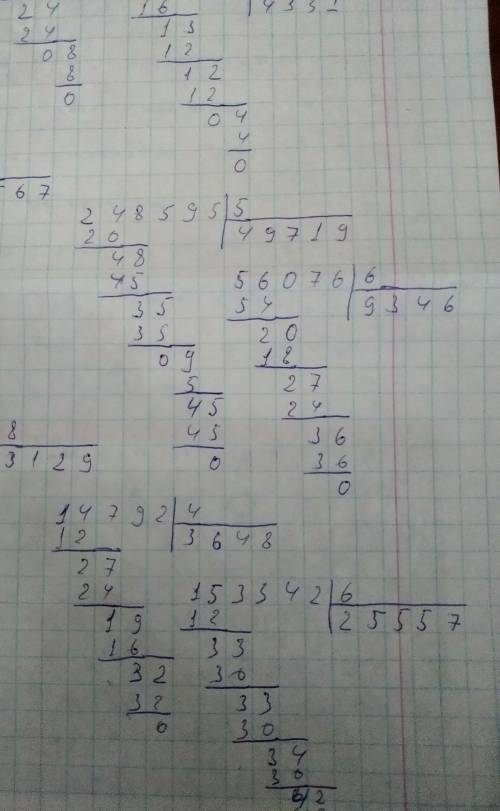 24
24
08
8
0
16
13
12
12
12
04
4
0
4331
67
248595 | 5
20 49719
48
45
35
35
09
5
45
45
0
56076 | 6
54 9346
20
18
27
24
36
36
0
8
3129
14792 | 4
12 3648
27
24
19
16
32
32
0
153342 | 6
12 25557
33
30
33
30
34
30